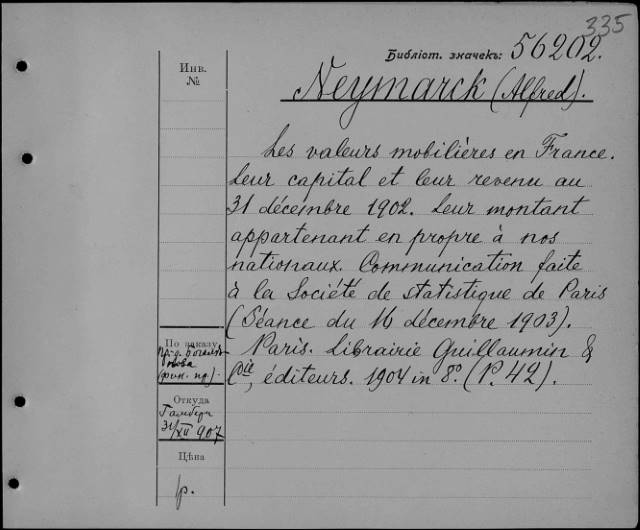 335
Библіот. значекъ: 56202.
Инв.
№
Neymarck (Alfred).
Les valeurs mobilières en France.
Leur capital et leur revenu au
31 décembre 1902. Leur montant
appartenant en propre à nos
nationaux. Communication faite
à la Société de statistique de Paris
(Séance du 16 décembre 1903).
Paris. Librairie Guillaumin &
Cie, éditeurs. 1904 in 8º. (P. 42).
По заказу
Откуда
31/XII 907
Цѣна
р.